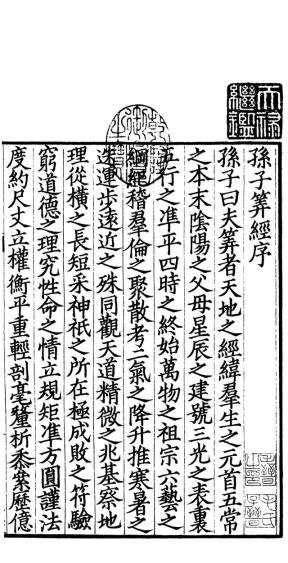 孫子筭經序
孫子曰夫筭者天地之經緯羣生之元首五常
之本末陰陽之父母星辰之建號三光之表裏
五行之准平四時之終始萬物之祖宗六藝之
綱紀稽羣倫之聚散考二氣之降升推寒暑之
迭運步遠近之殊同觀天道精微之兆基察地
理從橫之長短采神祇之所在極成敗之符驗
窮道德之理究性命之情立規矩准方圓謹法
度約尺丈立權衡平重輕剖毫釐析黍絫歷億
天祿
繼鑑